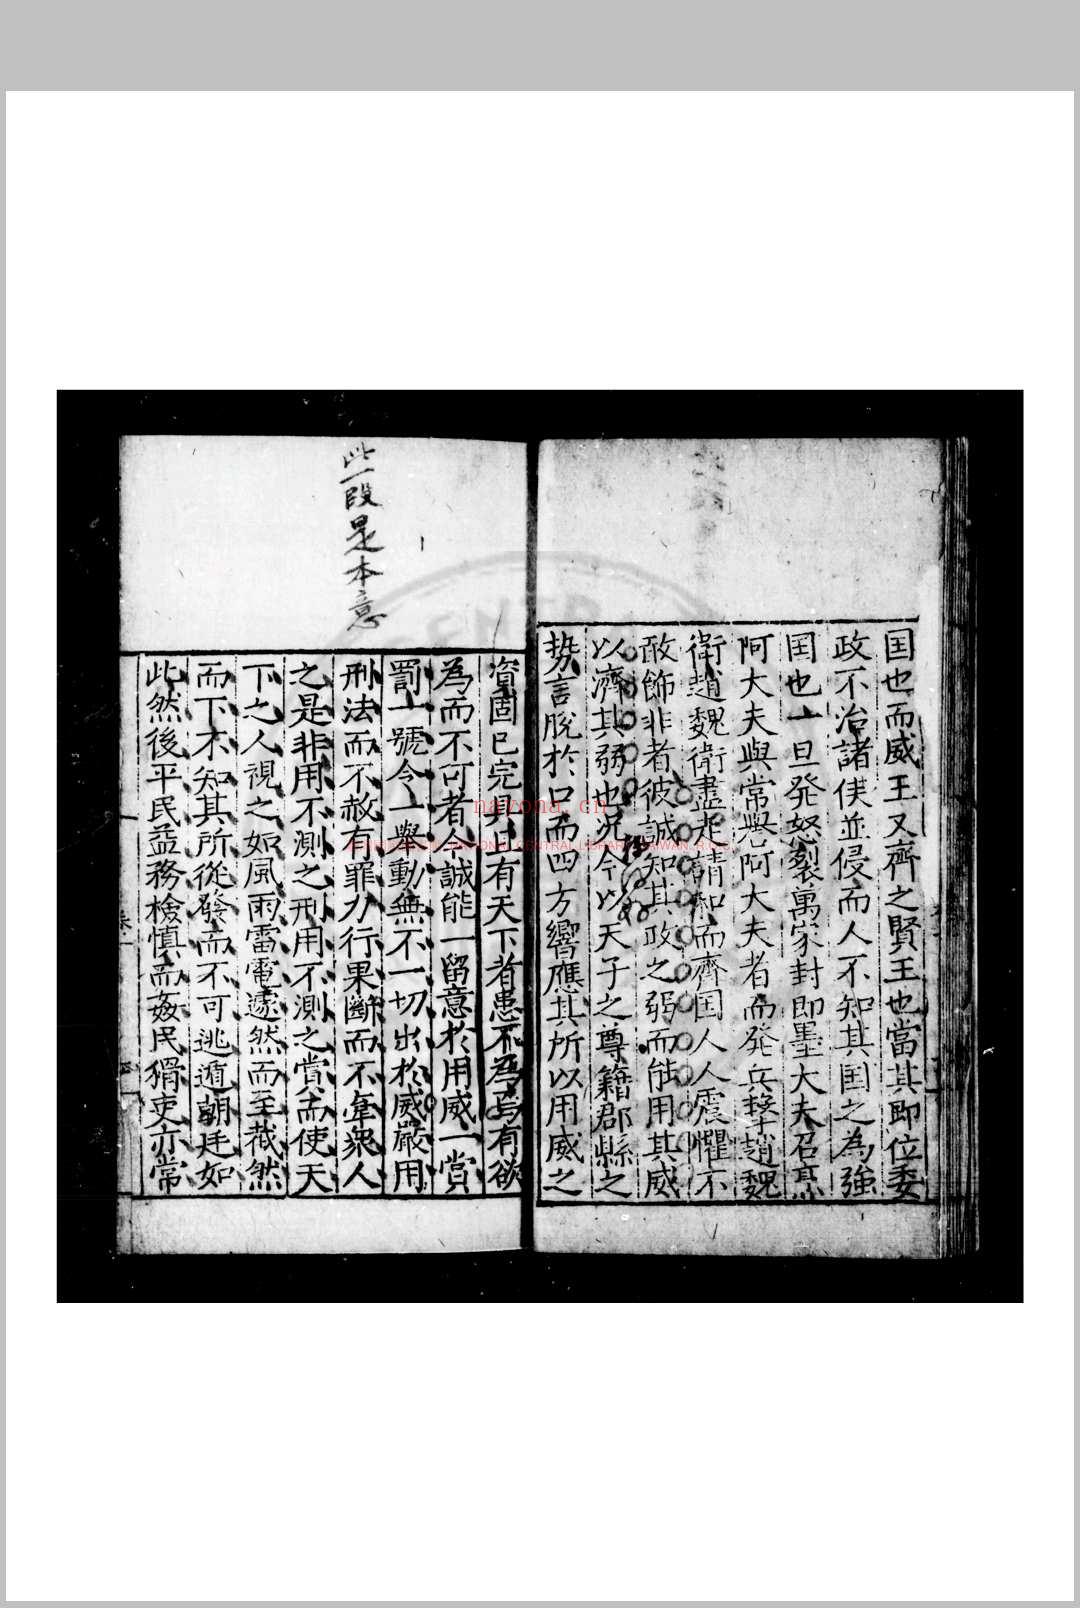 国也而威王又齊之賢王也當其即位委
政不治諸侯並侵而人不知其国之為強
国也一旦発怒裂萬家封即墨大夫召烹
阿大夫與常誉阿大夫者而発兵擊趙魏
衛趙魏衛盡走請和而齊国人人震懼不
敢飾非者彼誠知其政之弱而能用其威
以濟其弱也况今以天子之尊籍郡縣之
势言脫於口而四方響應其所以用威之
資固已完具且有天下者患不為焉有欲
為而不可者今誠能一留意於用威一賞
罰一號令一舉動無不一切出於威嚴用
刑法而不赦有罪力行果斷而不牽衆人
之是非用不測之刑用不測之賞而使天
下之人視之如風雨雷電遽然而至截然
而下不知其所從發而不可逃遁朝廷如
此然後平民益務檢慎而姦民猾吏亦常
此一段是本意
nayona.cn
NATIONAL CENTRAL LIBRARY, TAIWAN, R.O.C.